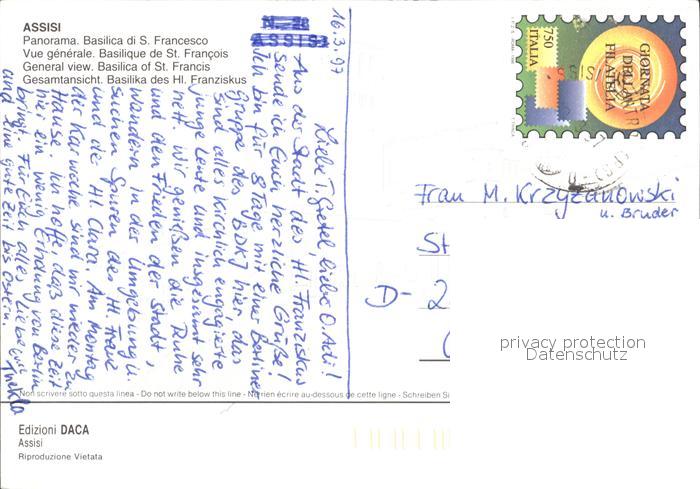 ASSISI
Panorama. Basilica di S. Francesco
Vue générale. Basilique de St. François
General view. Basilica of St. Francis
Gesamtansicht. Basilika des Hl. Franziskus
ASSISI
16.3.97
Liebe T. Gretel, liebe O. Adi!
Aus der Stadt des Hl. Franziskus
sende ich Euch herzliche Grüße!
Ich bin für 8 Tage mit einer Berliner
Gruppe des BDKJ hier, das
sind alles kirchlich engagierte
junge Leute und insgesamt sehr
nett. Wir genießen die Ruhe
und den Frieden der Stadt,
wandern in der Umgebung u.
suchen Spuren des Hl. Franz
und der Hl. Clara. Am Montag
der Karwoche sind wir wieder zu
Hause. Ich hoffe, daß diese Zeit
hier ein wenig Erholung von Berlin
bringt. Für Euch alles Liebe
und eine gute Zeit bis Ostern.
Thekla
GIORNATA
DELLA
FILATELIA
750
ITALIA
Frau M. Krzyzanowski
u. Bruder
St
D- 2
privacy protection
Datenschutz
Non scrivere sotto questa linea - Do not write below this line - Ne rien écrire au-dessous de cette ligne - Schreiben Si
Edizioni DACA
Assisi
Riproduzione Vietata